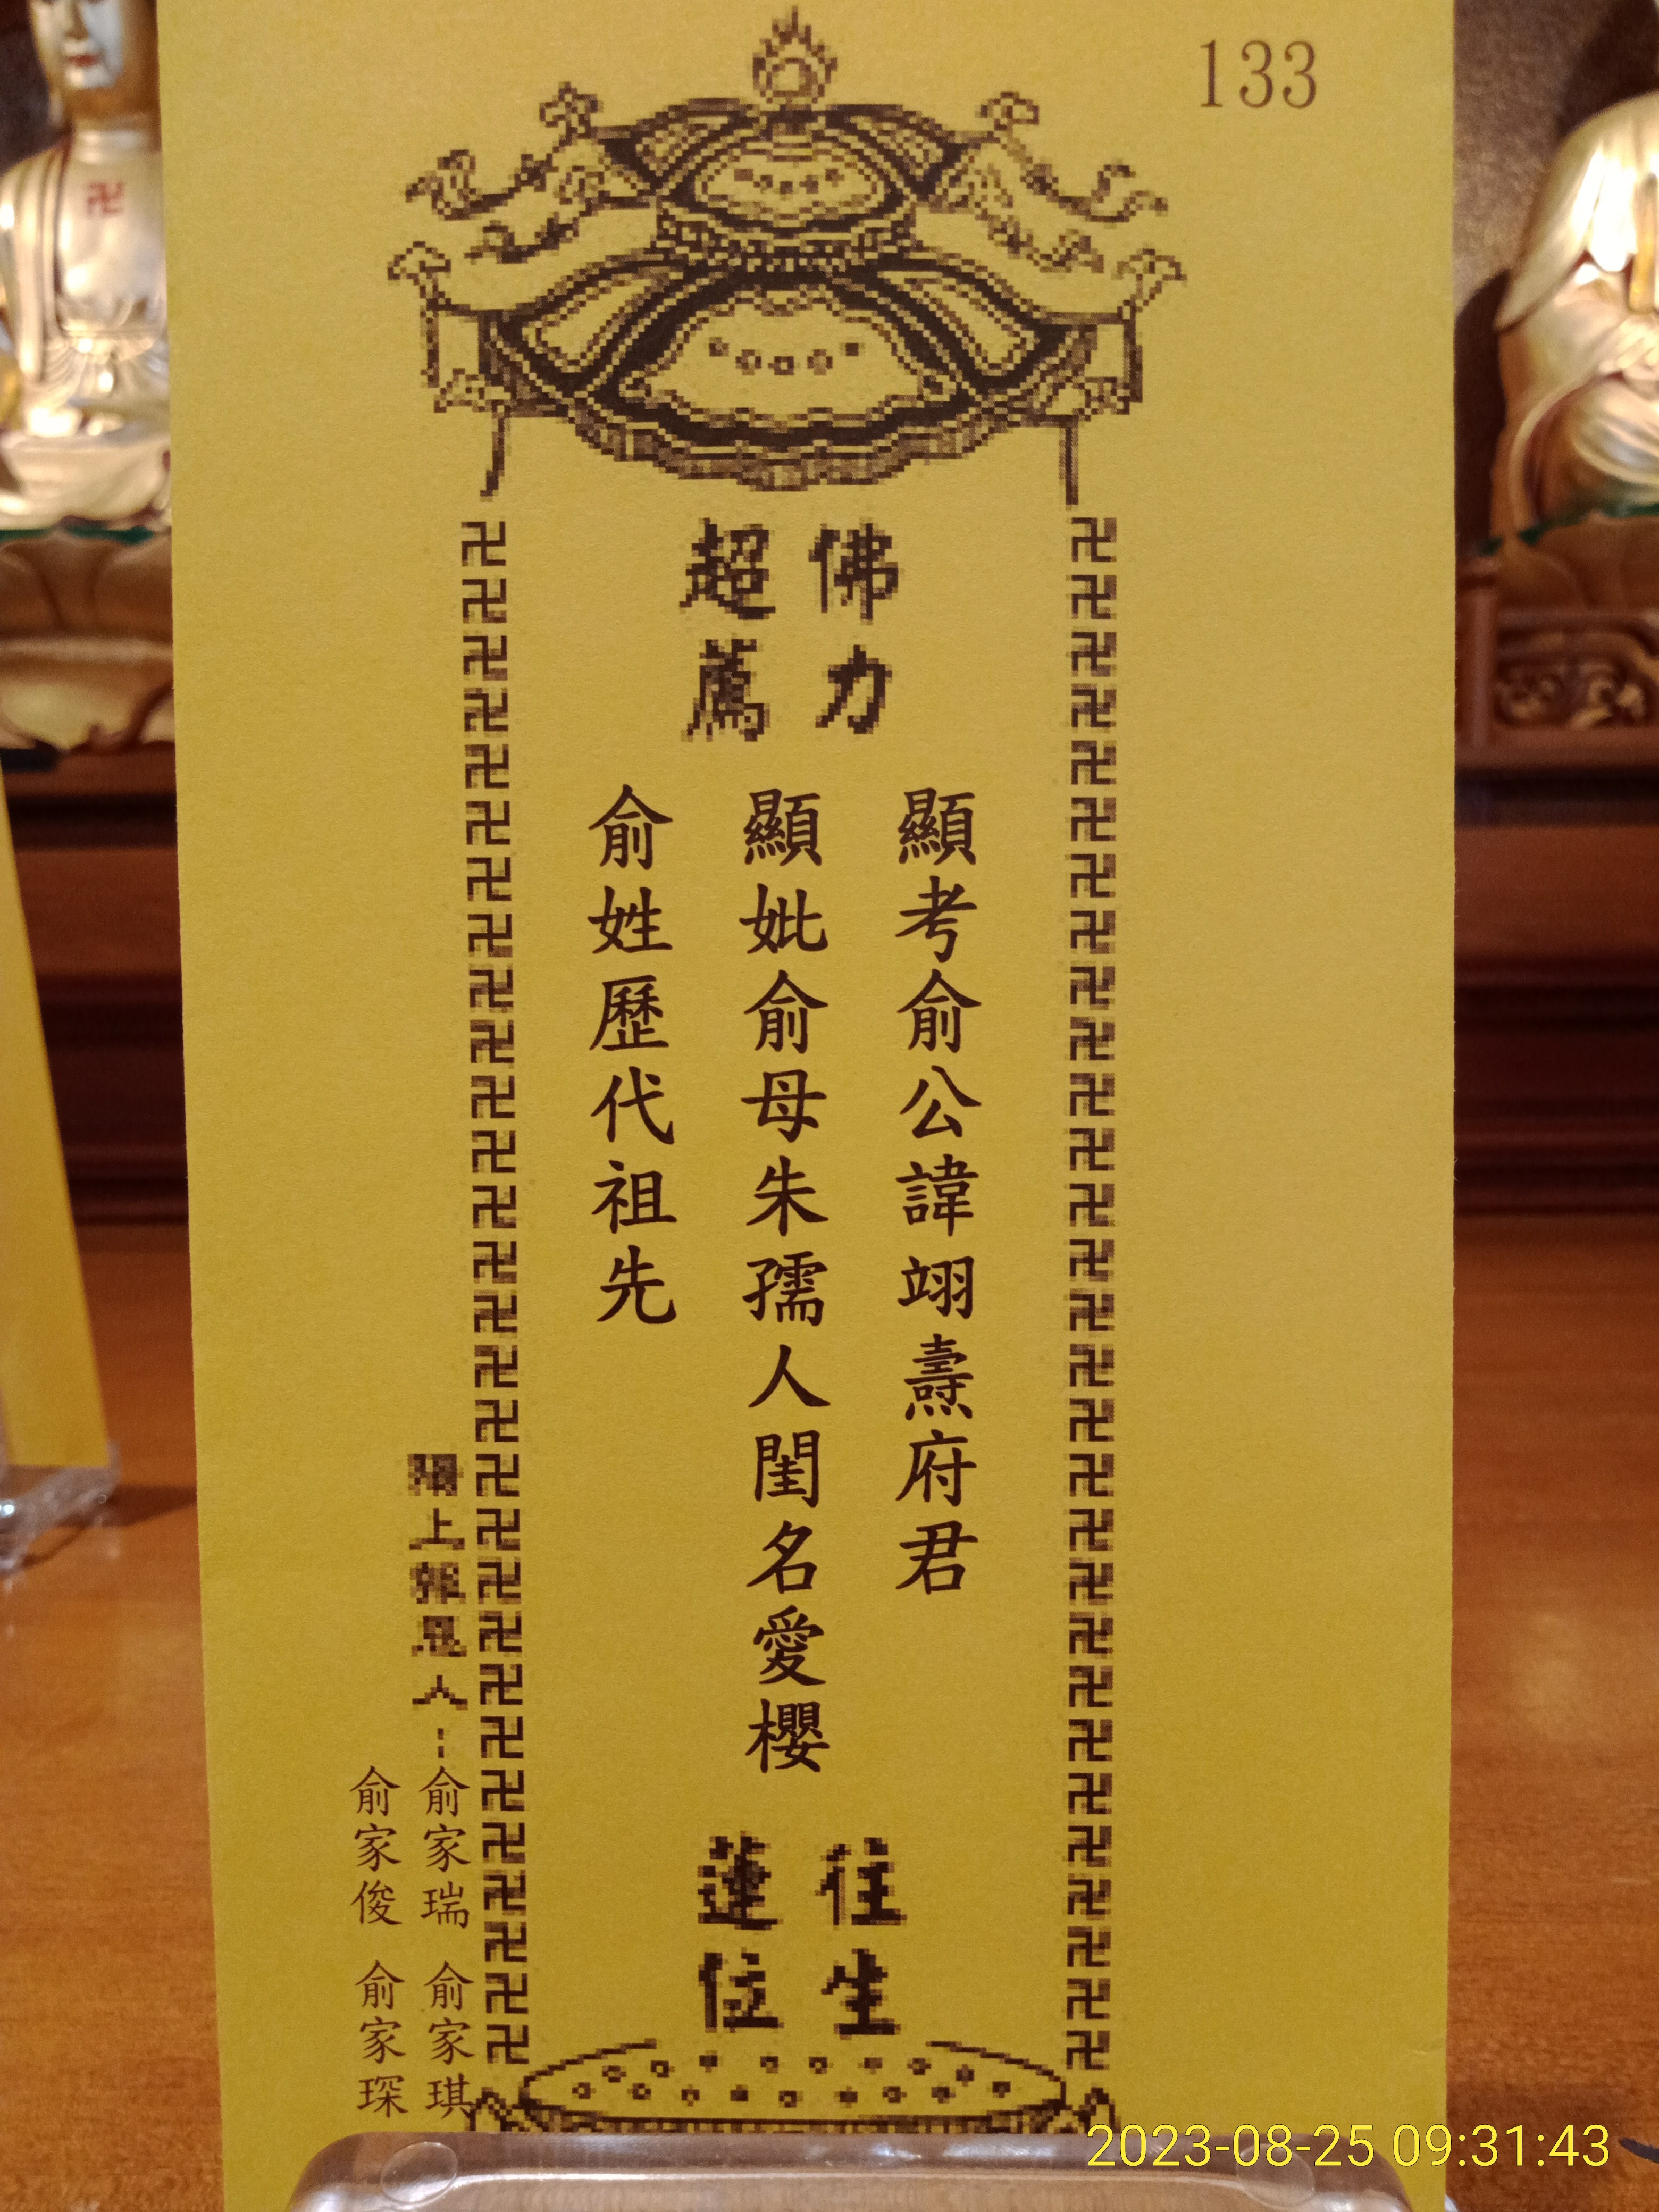 133
佛力
超薦
顯考俞公諱翊燾府君
顯妣俞母朱孺人閨名愛櫻
俞姓歷代祖先
往生
蓮位
陽上報恩人：
俞家瑞 俞家琪
俞家俊 俞家琛
2023-08-25 09:31:43